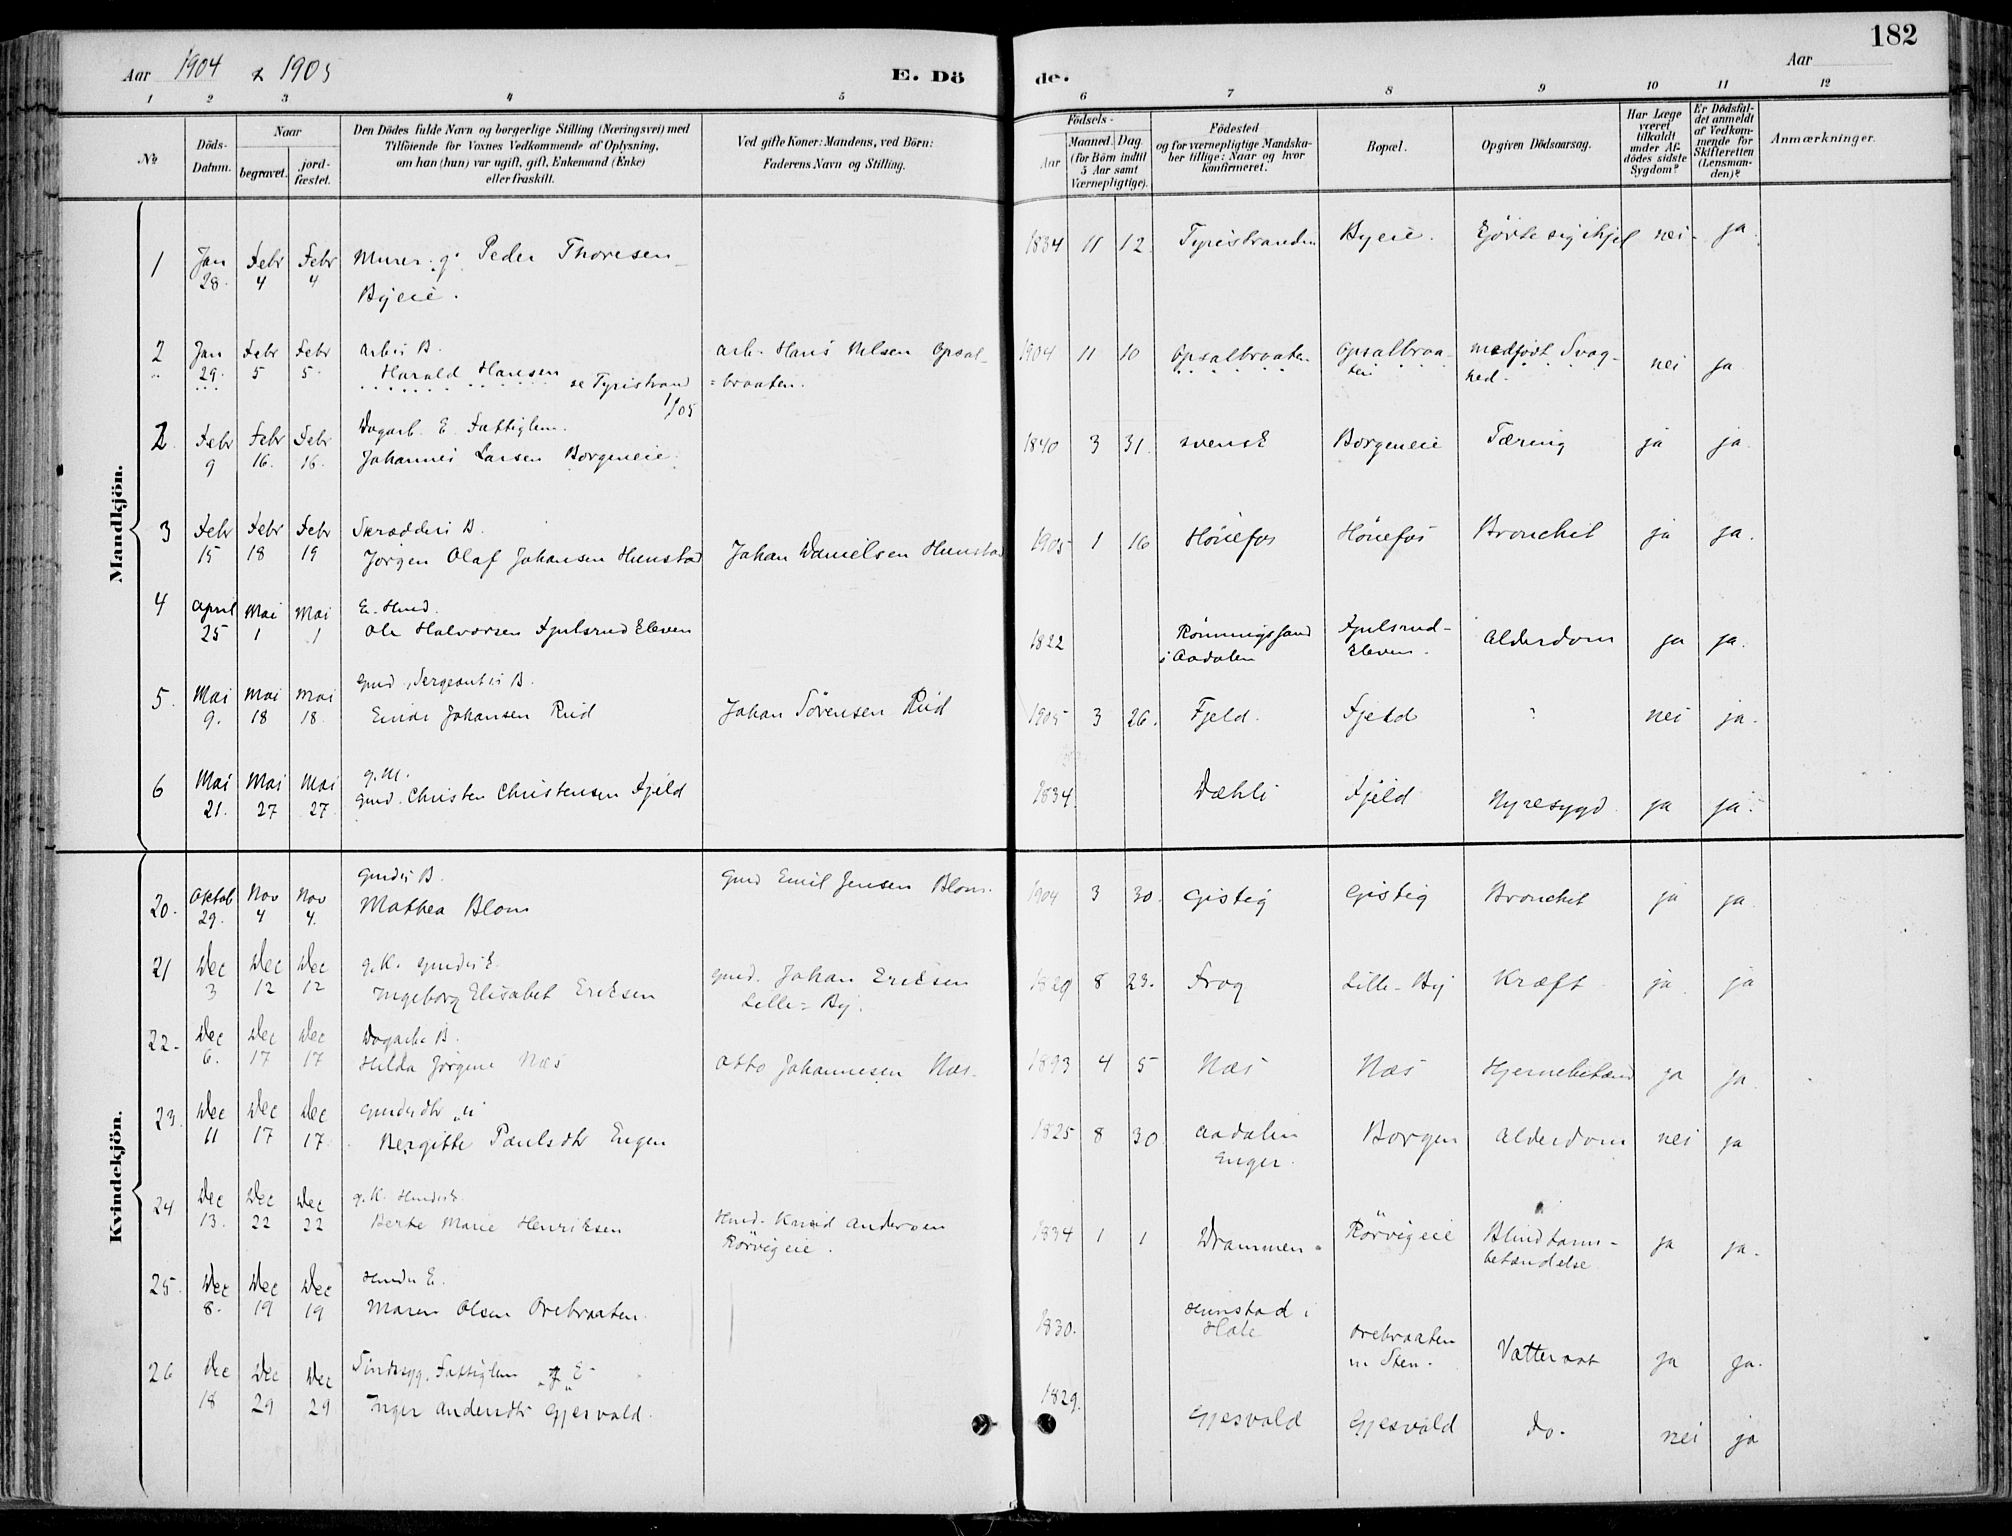 Aar 1904 & 1905
E. Dö
de.
Aar
182
1 2 3 4 5 6 7 8 9 10 11 12
No
Döds-Datum.
Naar
begravet.
jord-fæstet.
Den Dödes fulde Navn og borgerlige Stilling (Næringsvei) med
Tilföiende for Voxnes Vedkommende af Oplysning,
om han (hun) var ugift, gift, Enkemand (Enke)
eller fraskilt.
Ved gifte Koner: Mandens, ved Börn:
Faderens Navn og Stilling.
Födsels-
Aar
Maaned. Dag
(for Börn indtil
5 Aar samt
Værnepligtige).
Födested
og for værnepligtige Mandska-
ber tillige: Naar og hvor
konfirmeret.
Bopæl.
Opgiven Dödsaarsag.
Har Læge
været
tilkaldt
under Af-
dödes sidste
Sygdom?
Er Dödsfal-
det anmeldt
af Vedkom-
mende for
Skifteretten
(Lensman-
den)?
Anmærkninger.
Mandkjön.
1 Jan 28. Febr 4 Febr 4 Murer. g. Peder Thoresen Byeie. 1834 11 12. Tyristranden Byeie. Gjörte sig ihjel nei- ja.
2 Jan 29. Febr 5 Febr 5. Arb's B. Harald Hansen se Tyristrand 1/05 Arb. Hans Nilsen Opsal-=braaten. 1904 11 10 Opsalbraaten Opsalbraaten medfödt Svag-hed. nei ja.
2. Febr 9 Febr 16. Febr 16. Dagarb. E. Fattiglem. Johannes Larsen Borgeneie. 1840 3 31. svensk Borgeneie Tæring ja ja.
3 Febr 15 Febr 18 Febr 19 Skrædders B. Jörgen Olaf Johansen Hunstad Johan Danielsen Hunstad 1905 1 16 Hönefos Hönefos Bronchit ja ja.
4 April 25 Mai 1 Mai 1 E. Hmd. Ole Halvorsen Fjulsrud Eleven 1822 Rönningsand i Aadalen Fjulsrud-Eleven. Alderdom ja ja.
5. Mai 9. Mai 18 Mai 18. Gmd, Sergeants B. Einar Johansen Rud Johan Sörensen Rud 1905 3 26. Fjeld. Fjeld ? nei ja.
6 Mai 21. Mai 27 Mai 27 g. M. Gmd. Christen Christensen Fjeld 1834 Dæhli Fjeld Nyresygd. ja ja.
Kvindekjön.
20. Oktob 29. Nov 4 Nov 4. Gmds B. Mathea Blom Gmd Emil Jensen Blom. 1904 3 30. Gistig Gistig Bronchit ja ja.
21 Dec 3 Dec 12 Dec 12 g. K. Gmds E. Ingeborg Elisabet Eriksen Gmd. Johan Eriksen Lille-By. 1829 8 23. Frog Lille-By Kræft ja. ja
22- Dec 6. Dec 17 Dec 17 Dagarbs B. Hilda Jörgine Næs Otto Johannesen Næs. 1893 4 5 Næs Næs Hjernebetænd ja ja.
23. Dec 11 Dec 17 Dec 17. Gmdsdtr "u" Bergitte Paulsdtr Enger 1825 8 30 Aadalen Enger. Borgen Alderdom nei ja
24 Dec 13. Dec 22 Dec 22 g. K. Hmdsk. Berte Marie Henriksen Hmd. Knud Andersen Rörvigeie. 1834 1 1 Drammen. Rörvigeie Blindtarm-betændelse ja ja.
25. Dec 8. Dec 19 Dec 19 Hmds E. Maren Olsen Orebraaten. 1830. Hunstad i Hole Orebraaten u. Sten. Vattersot ja ja.
26 Dec 18 Dec 29 Dec 29 Sindssyg. Fattiglem E- Inger Andersdtr Gjesvald. 1829. Gjesvald Gjesvald do. nei ja